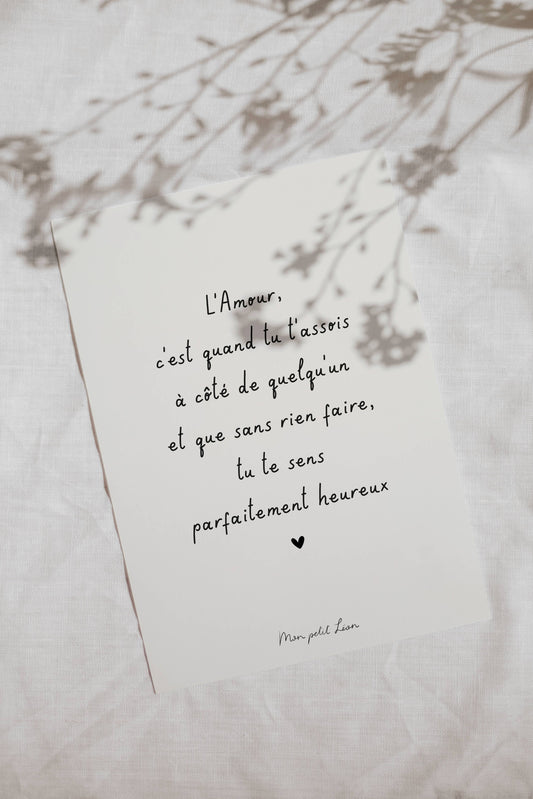 L'Amour,
c'est quand tu t'assois
à côté de quelqu'un
et que sans rien faire,
tu te sens
parfaitement heureux
Mon petit Léon